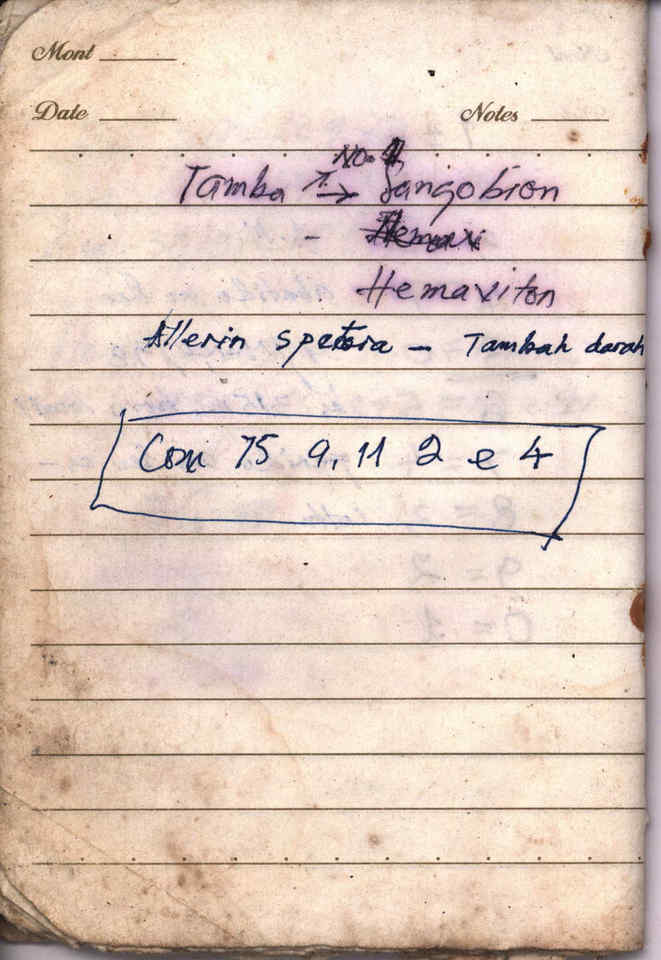 Mont
Date Notes
No. 1
Tamba → Sangobion
- Hemaxi
Hemaviton
Allerin - Tambah darah
Com 75 9, 11 2 e 4